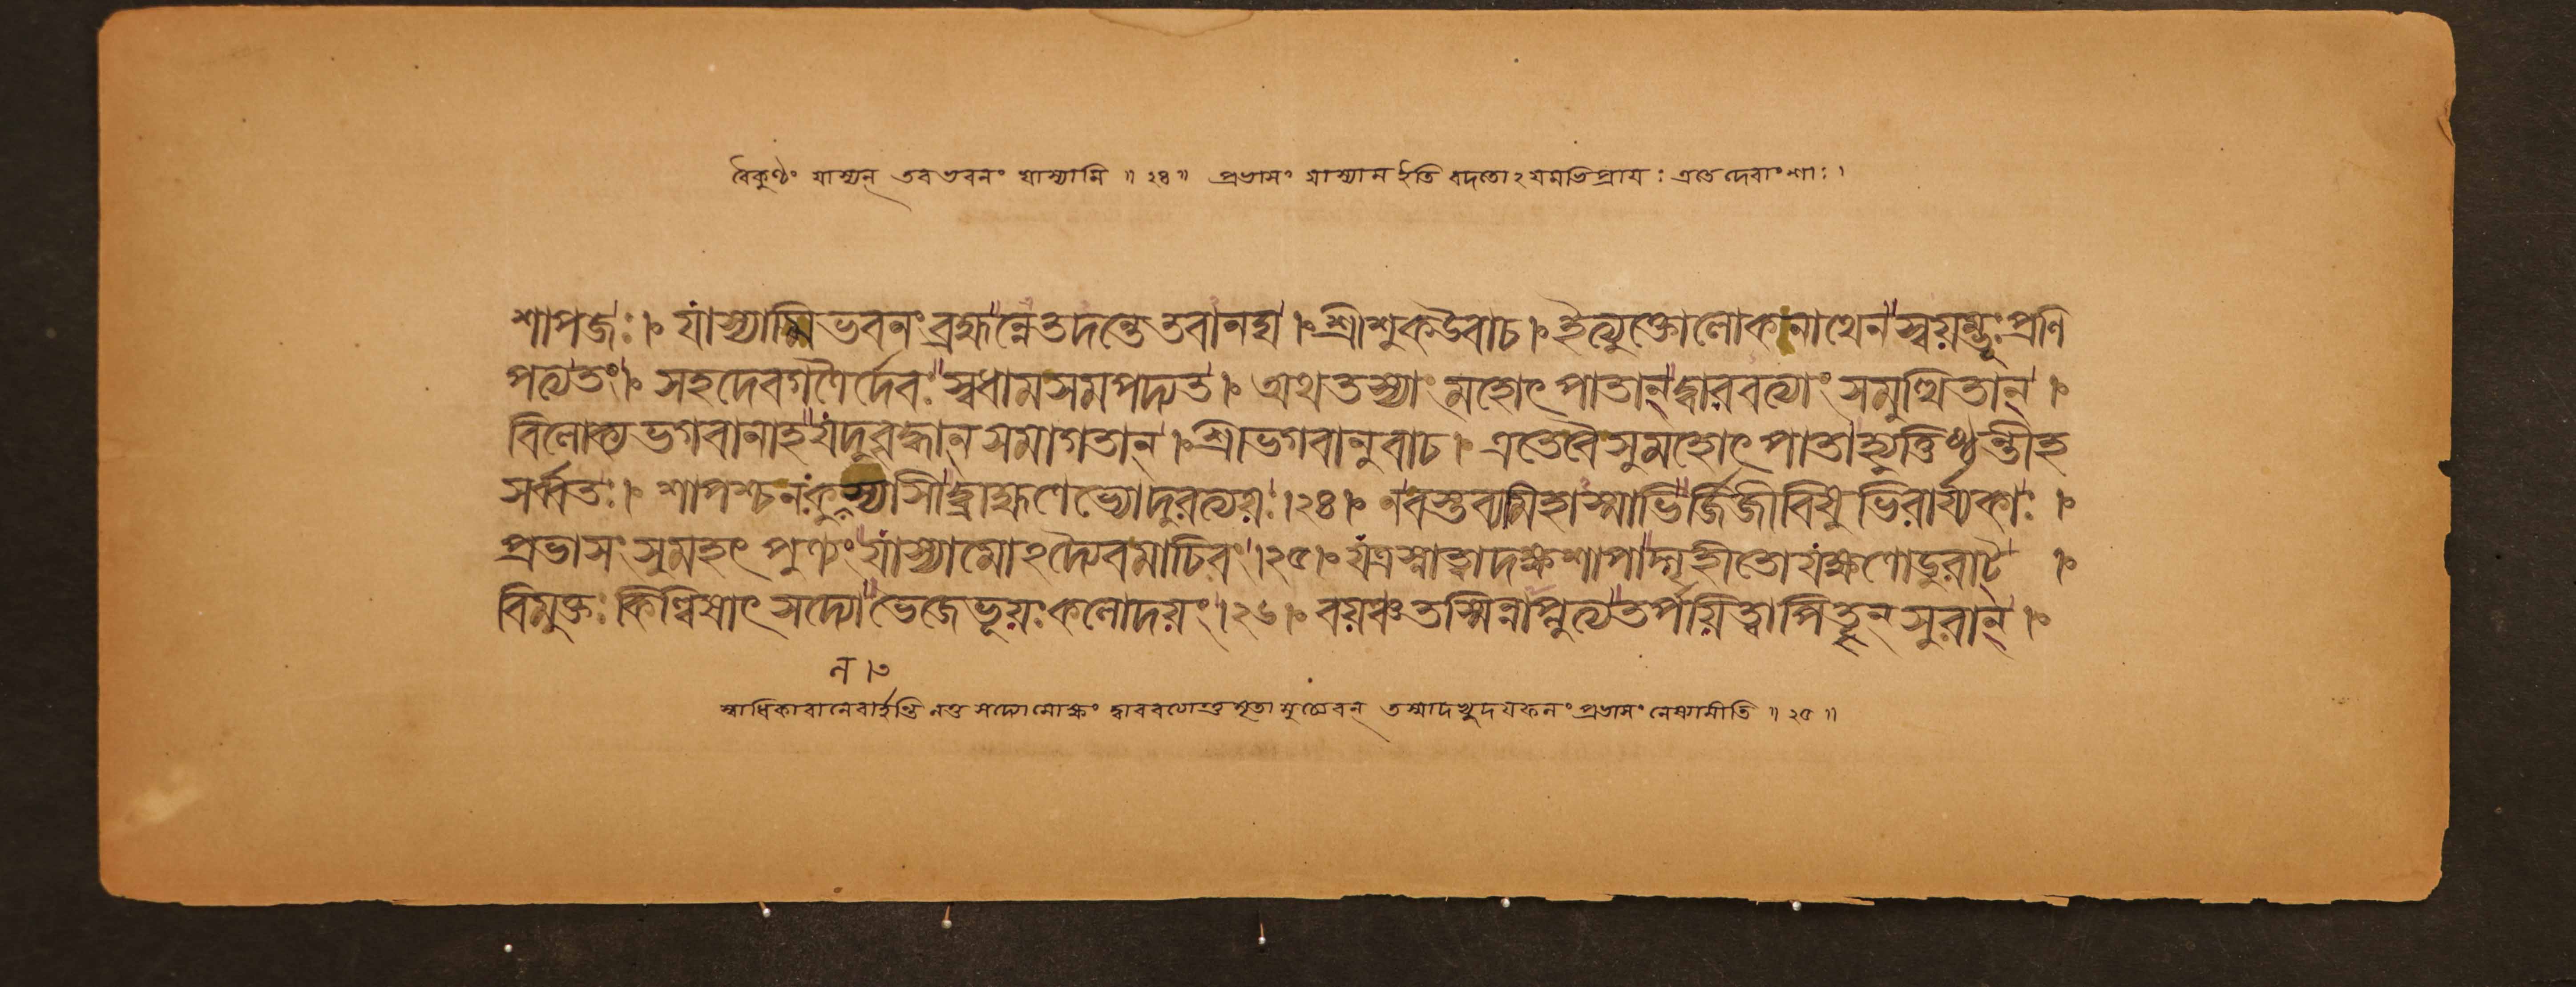 বৈকুণ্ঠং যাস্যন্ তব ভবনং যাস্যামি ॥ ২৪ ॥ প্রভাসং যাস্যাম ইতি বদতোঽয়মভিপ্রায়ঃ এতে দেবাংশাঃ ।
শাপজঃ । যাস্যামি ভবনং ব্রহ্মন্নেতদন্তে তবানঘ । শ্রীশুক উবাচ । ইত্যুক্তো লোকনাথেন স্বয়ম্ভূঃ প্রণি
পত্য তং । সহ দেবগণৈর্দেবঃ স্বধাম সমপদ্যত । অথ তস্যাং মহোৎপাতান্ দ্বারবত্যাং সমুত্থিতান্ ।
বিলোক্য ভগবানাহ যদুবৃদ্ধান্ সমাগতান্ । শ্রীভগবানুবাচ । এতে বৈ সুমহোৎপাতা হ্যুত্তিষ্ঠন্তীহ
সর্ব্বতঃ । শাপশ্চ নঃ কুলস্যাসীদ্ব্রাহ্মণেভ্যো দুরত্যয়ঃ । ২৪ । ন বস্তব্যমিহাস্মাভির্জিজীবিষুভিরার্য্যকাঃ ।
প্রভাসং সুমহৎপুণ্যং যাস্যামোঽদ্যৈব মাচিরং । ২৫ । যত্র স্নাত্বা দক্ষশাপাদ্গৃহীতো যক্ষ্মণোডুরাট্ ।
বিমুক্তঃ কিল্বিষাৎ সদ্যো ভেজে ভূয়ঃ কলোদয়ং । ২৬ । বয়ঞ্চ তস্মিন্নাপ্লুত্য তর্পয়িত্বা পিতৄন্ সুরান্ ।
ন । ৩
স্বাধিকারানেবার্হন্তি নতু সদ্যো মোক্ষং দ্বারবত্যান্তু মৃতা মুচ্যেরন্ তস্মাদভ্যুদয়ফলং প্রভাসং নেষ্যামীতি ॥ ২৫ ॥